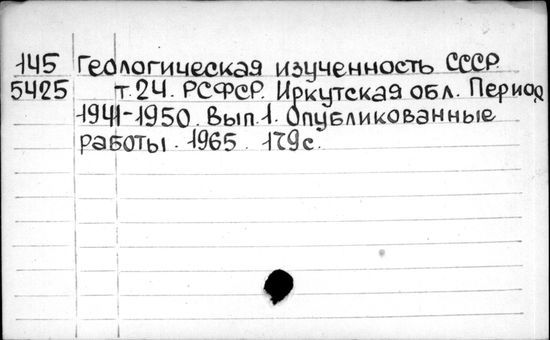 145 Геологическая изученность СССР
5425 т.24. РСФСР. Иркутская обл. Период
1941-1950. Вып.1. Опубликованные
работы. 1965. 179с.